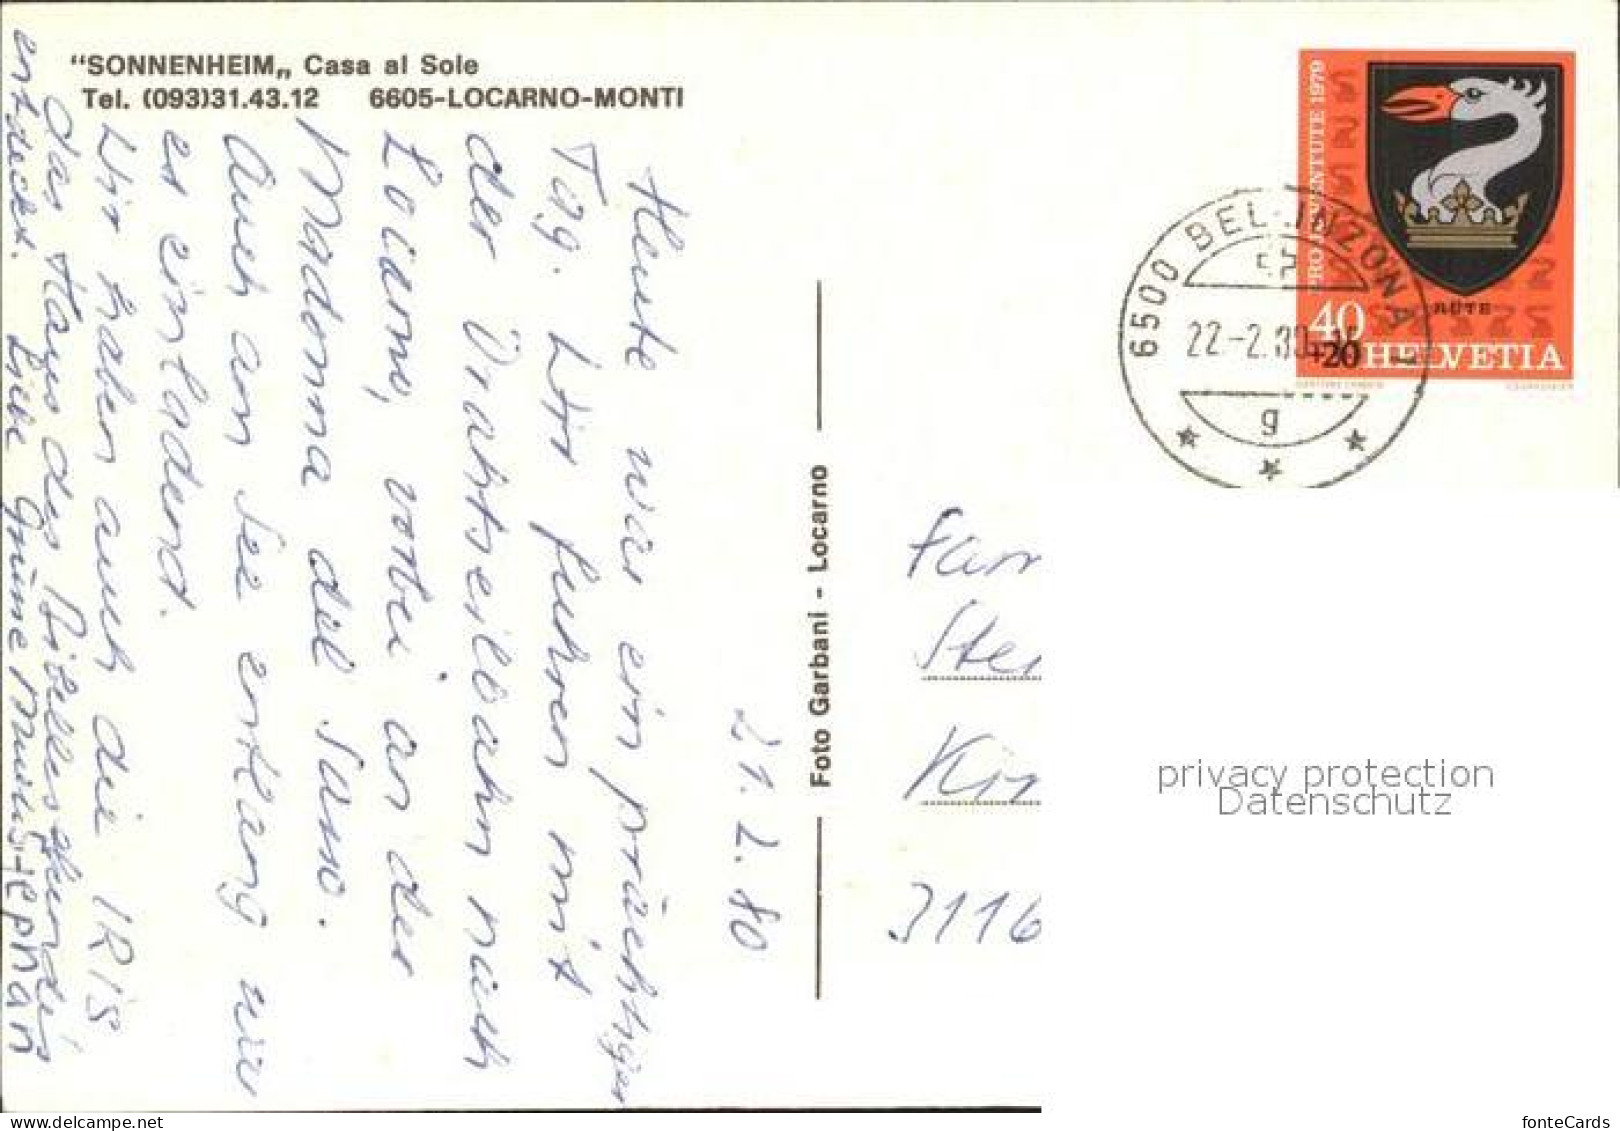 "SONNENHEIM„ Casa al Sole
Tel. (093)31.43.12 6605-LOCARNO-MONTI
21.2.80
Heute war ein prächtiger
Tag. Wir fuhren mit
der Drahtseilbahn nach
Locarno, vorbei an der
Madonna del Sasso.
Auch am See entlang war
es einladend.
Wir haben auch die IRIS
das Haus des
entdeckt. Liebe Grüsse Stephan
Foto Garbani - Locarno
PRO JUVENTUTE 1979
RÜTE
40
+20 HELVETIA
6500 BELLINZONA
22.-2.80
g
Fam
3116
privacy protection
Datenschutz
fonteCards